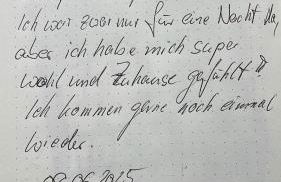 Ich war zwar nur für eine Nacht da,
aber ich habe mich super
wohl und Zuhause gefühlt
Ich kommen gerne noch einmal
wieder.
09.06.2025